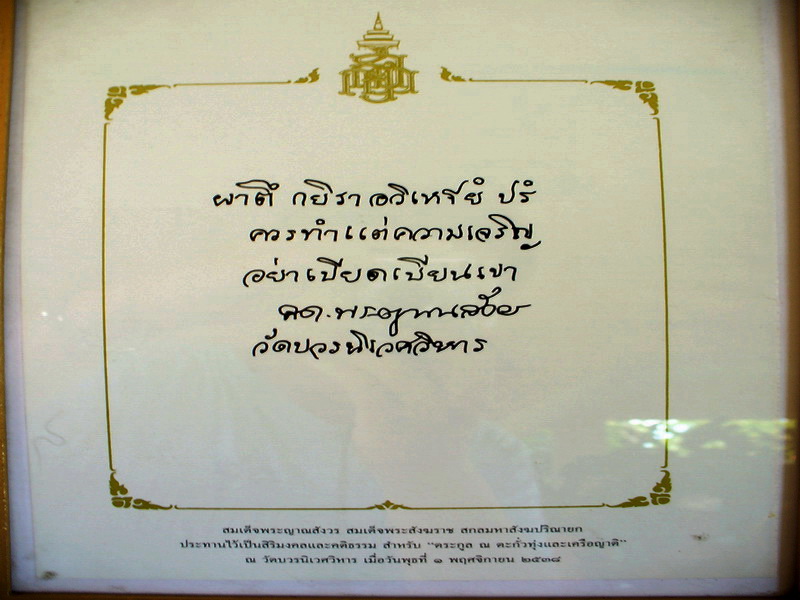 ผาตึ กยิรา อวิเหฐยํ ปรํ
ควรทำแต่ความเจริญ
อย่าเบียดเบียนเขา
วัดบวรนิเวศวิหาร
สมเด็จพระญาณสังวร สมเด็จพระสังฆราช สกลมหาสังฆปริณายก
ประทานไว้เป็นสิริมงคลและคติธรรม สำหรับ "ตระกูล ณ ตะกั่วทุ่งและเครือญาติ"
ณ วัดบวรนิเวศวิหาร เมื่อวันพุธที่ ๑ พฤศจิกายน ๒๕๓๘